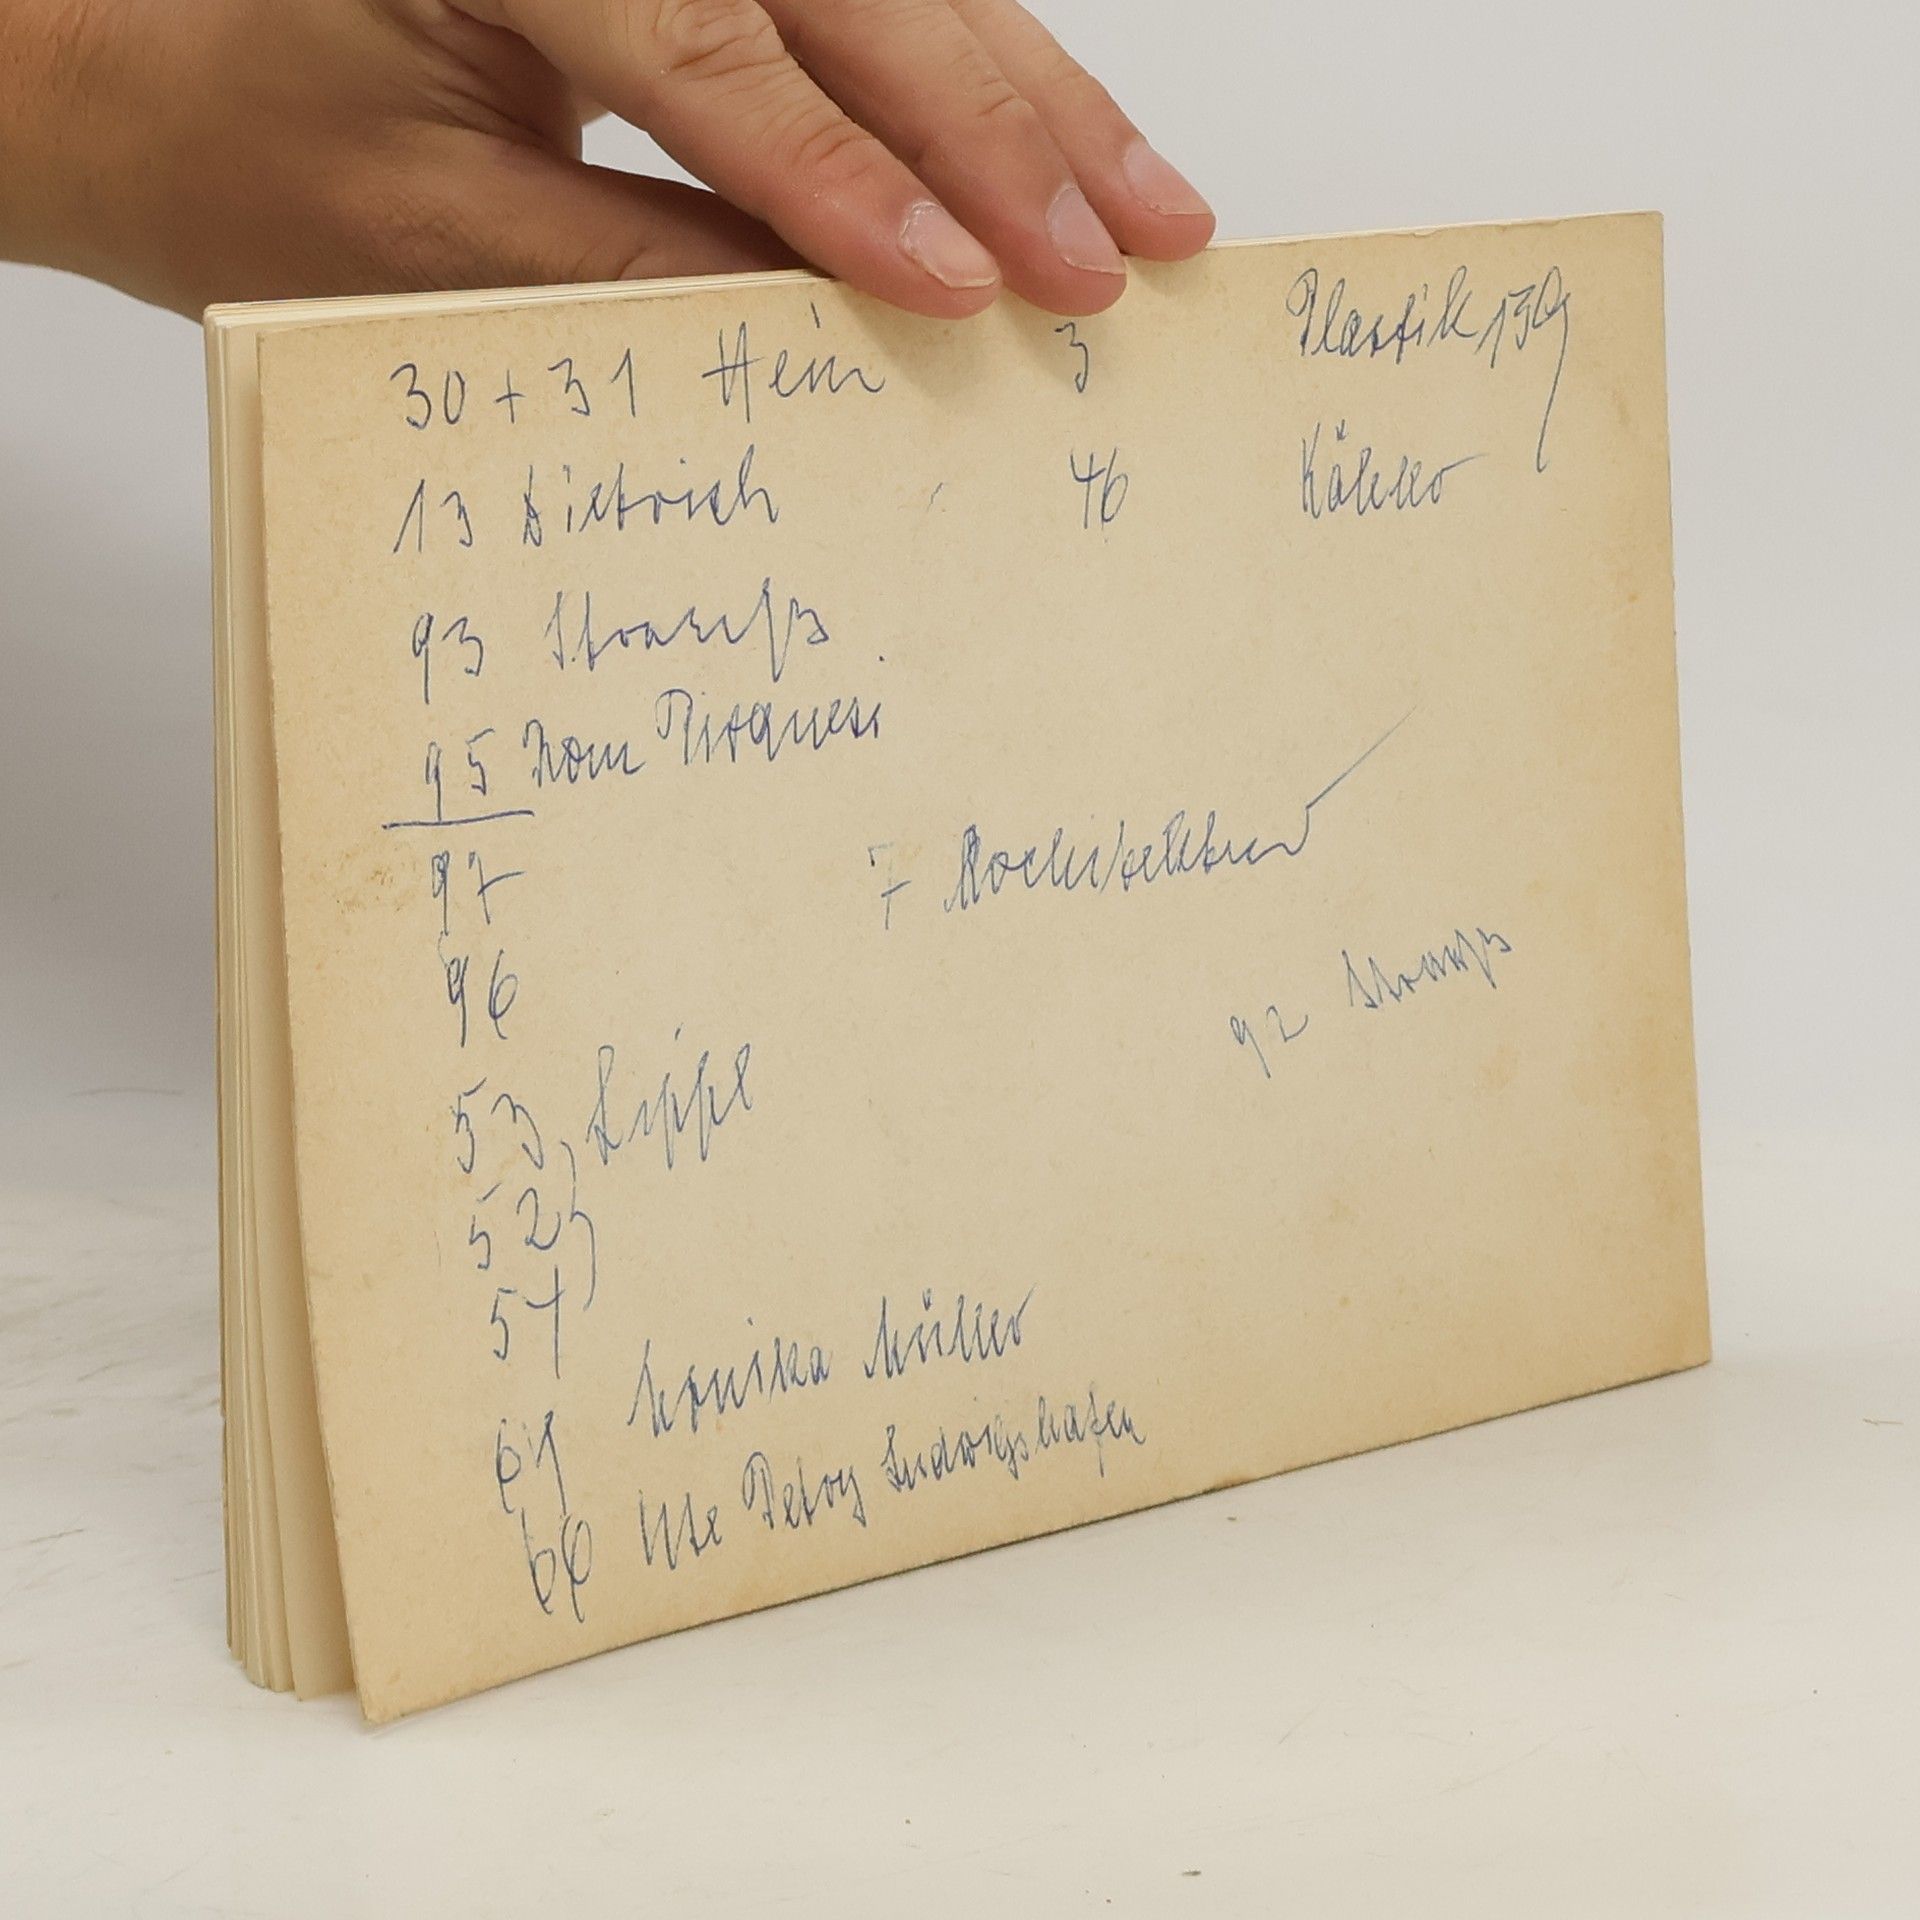 30 + 31 Hein 3 Plastik 139
13 Dietrich 46 Köhler
93 Strauß
95 Rom Piranesi
97
7
96
92 Strauß
53, Lippe
52
54
69 Monika Müller
60 Ute Petry Ludwigshafen